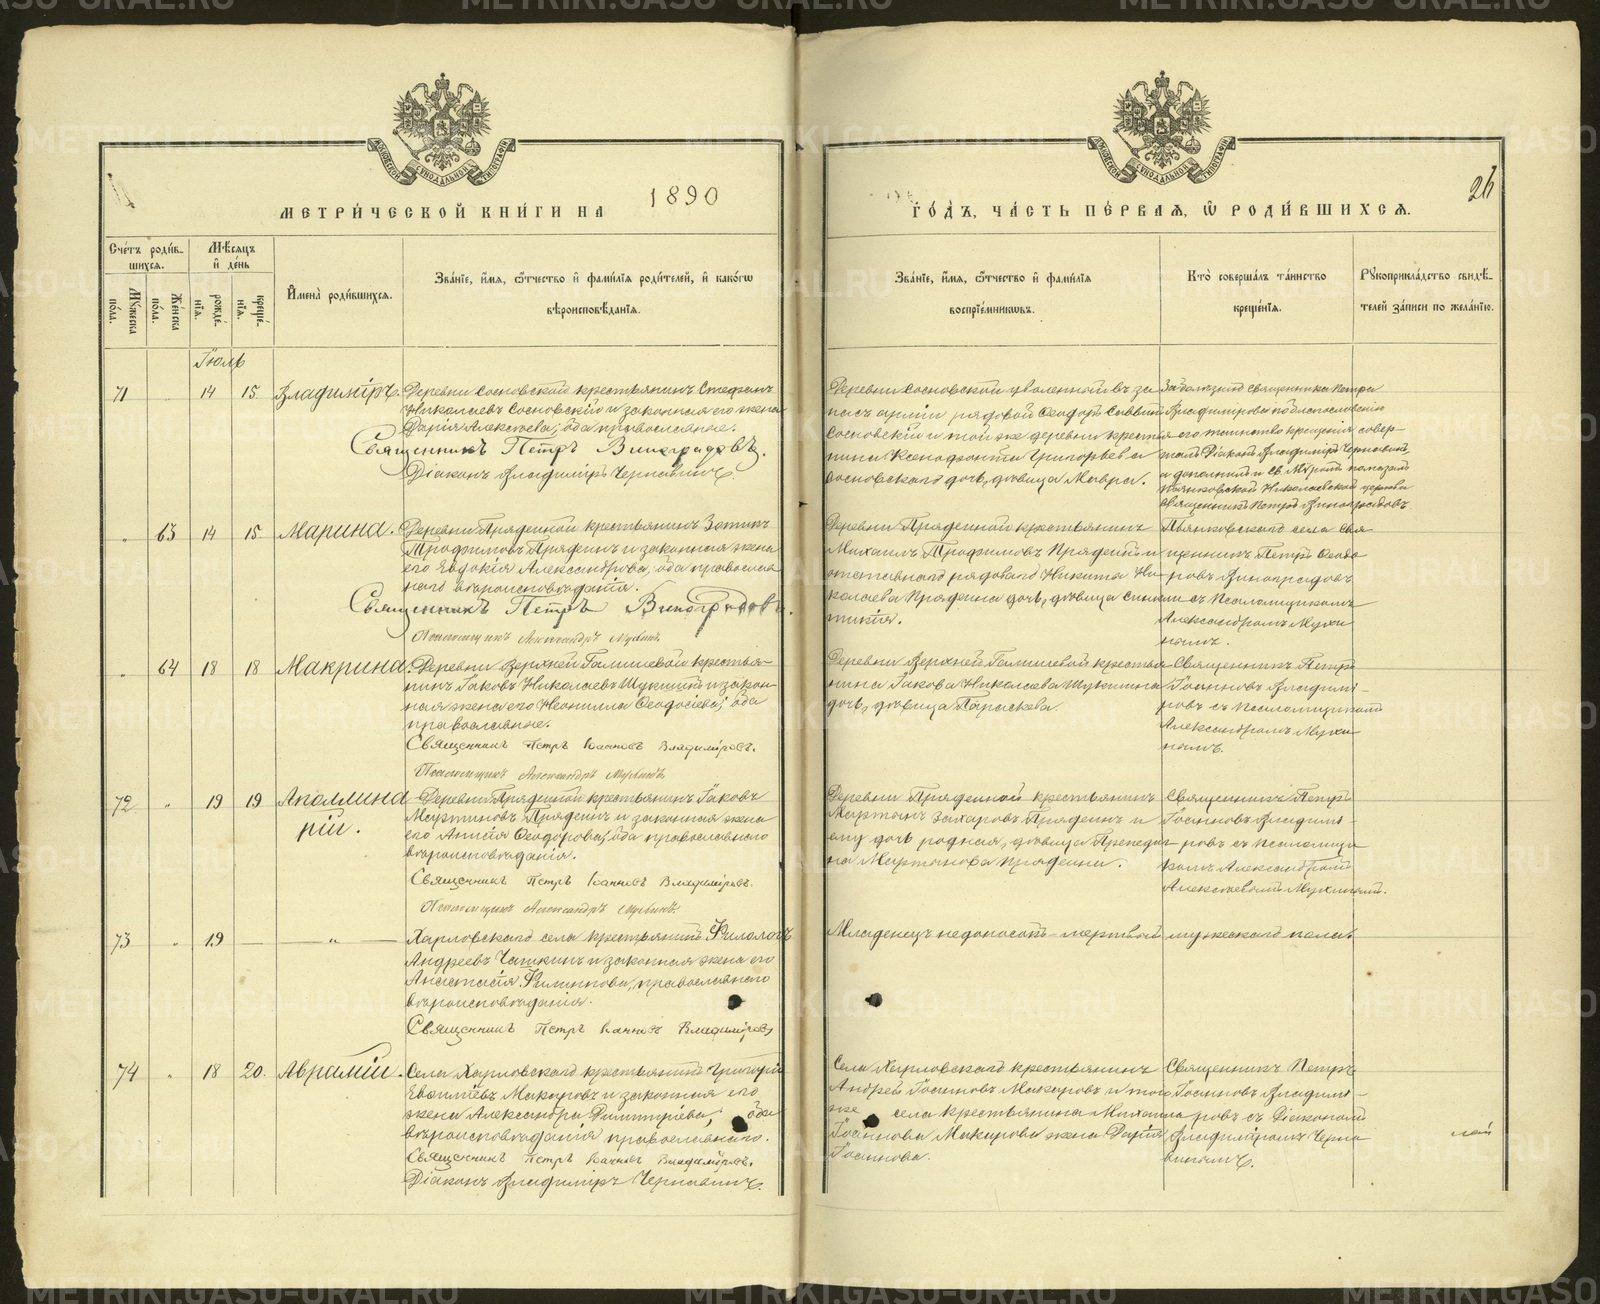 МЕТРИ́ЧЕСКОЙ КНИ́ГИ НА 1890
ГО́ДЪ, ЧА́СТЬ ПЕ́РВАЯ, Ѽ РОДИ́ВШИХСЯ.
26
Сче́тъ роди́в-
шихся.
Му́жеска
по́ла.
Же́нска
по́ла.
Мѣ́сяцъ
и҆ де́нь
рожде́-
нїя.
креще́-
нїя.
И҆мена̀ роди́вшихся.
Зва́нїе, и҆́мя, ѻ҆́тчество и҆ фами́лїя роди́телей, и҆ како́гѡ
вѣроисповѣ́данїя.
Зва́нїе, и҆́мя, ѻ҆́тчество и҆ фами́лїя
воспрїе́мниковъ.
Кто̀ соверша́лъ та́инство
креще́нїя.
Рꙋкоприкла́дство свидѣ́-
телей за́писи по жела́нїю.
Іюль
71
14
15
Владиміръ.
Деревни Сосновской крестьянинъ Стефанъ
Николаевъ Сосновскій и законная его жена
Дарія Алексѣева, оба православные.
Священникъ Петръ Виноградовъ.
Діаконъ Владиміръ Чернавинъ.
Деревни Сосновской уволенной въ за
пасъ арміи рядовой Ѳеодоръ Саввинъ
Сосновскій и той же деревни крестья
нина Ксенофонта Григорьева
Сосновскаго дочь, дѣвица Мавра.
За болѣзнію священника Петра
Владимірова по благословенію
его таинство крещенія совер-
шалъ Діаконъ Владиміръ Чернавинъ,
а дополнилъ и Св. Мѵромъ помазалъ
Николаевской церкви
священникъ Петръ Виноградовъ
„
63
14
15
Марина.
Деревни Прядеиной крестьянинъ Зотикъ
Трофимовъ Прядеинъ и законная жена
его Евдокія Александрова, оба православ
наго вѣроисповѣданія.
Священникъ Петръ Виноградовъ.
Псаломщикъ Александръ Мухинъ.
Деревни Прядеиной крестьянинъ
Михаилъ Трофимовъ Прядеинъ и
отставнаго рядоваго Никиты Ни-
колаева Прядеина дочь, дѣвица Синкли
тикія.
села Свя
щенникъ Петръ Ѳеодо
ровъ Виноградовъ
съ Псаломщикомъ
Александромъ Мухи
нымъ.
„
64
18
18
Макрина.
Деревни Верхней Галишевой крестья-
нинъ Іаковъ Николаевъ Щукинъ и закон-
ная жена его Неонилла Ѳеодосіева, оба
православные.
Священникъ Петръ Іоанновъ Владиміровъ.
Псаломщикъ Александръ Мухинъ
Деревни Верхней Галишевой крестья
нина Іакова Николаева Щукина
дочь, дѣвица Параскева
Священникъ Петръ
Іоанновъ Владимі-
ровъ съ Псаломщикомъ
Александромъ Мухи
нымъ.
72
„
19
19
Аполлина
рій.
Деревни Прядеиной крестьянинъ Іаковъ
Мартиновъ Прядеинъ и законная жена
его Анисія Ѳеодорова, оба православнаго
вѣроисповѣданія.
Священникъ Петръ Іоанновъ Владиміровъ.
Псаломщикъ Александръ Мухинъ.
Деревни Прядеиной крестьянинъ
Захаровъ Прядеинъ и
ему дочь родная, дѣвица
Мартинова Прядеина.
Священникъ Петръ
Іоанновъ Владимі-
ровъ съ Псаломщи
комъ Александромъ
Алексѣевымъ Мухинымъ.
73
„
19
—
— „ —
Харловскаго села крестьянинъ Филологъ
Андреевъ Чашкинъ и законная жена его
Анастасія Филиппова, православнаго
вѣроисповѣданія.
Священникъ Петръ Іоанновъ Владиміровъ
Младенецъ недоносокъ мертвый мужескаго пола.
74
„
18
20.
Аврамій.
Села Харловскаго крестьянинъ Григорій
Евѳиміевъ Макаровъ и законная его
жена Александра Димитріева, оба
вѣроисповѣданія православнаго.
Священникъ Петръ Іоанновъ Владиміровъ.
Діаконъ Владиміръ Чернавинъ.
Села Харловскаго крестьянинъ
Андрей Іоанновъ Макаровъ и того
же села крестьянина Михаила
Іоаннова Макарова жена Дарія
Іоаннова.
Священникъ Петръ
Іоанновъ Владимі-
ровъ съ Діакономъ
Владиміромъ Черна
винымъ.
METRIKI.GASO-URAL.RU